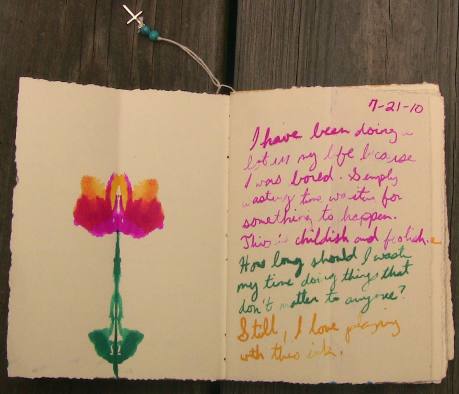 7-21-10
I have been doing a
lot in my life because
I was bored. Simply
wasting time waiting for
something to happen.
This is childish and foolish.
How long should I waste
my time doing things that
don't matter to anyone?
Still, I love playing
with this ink.